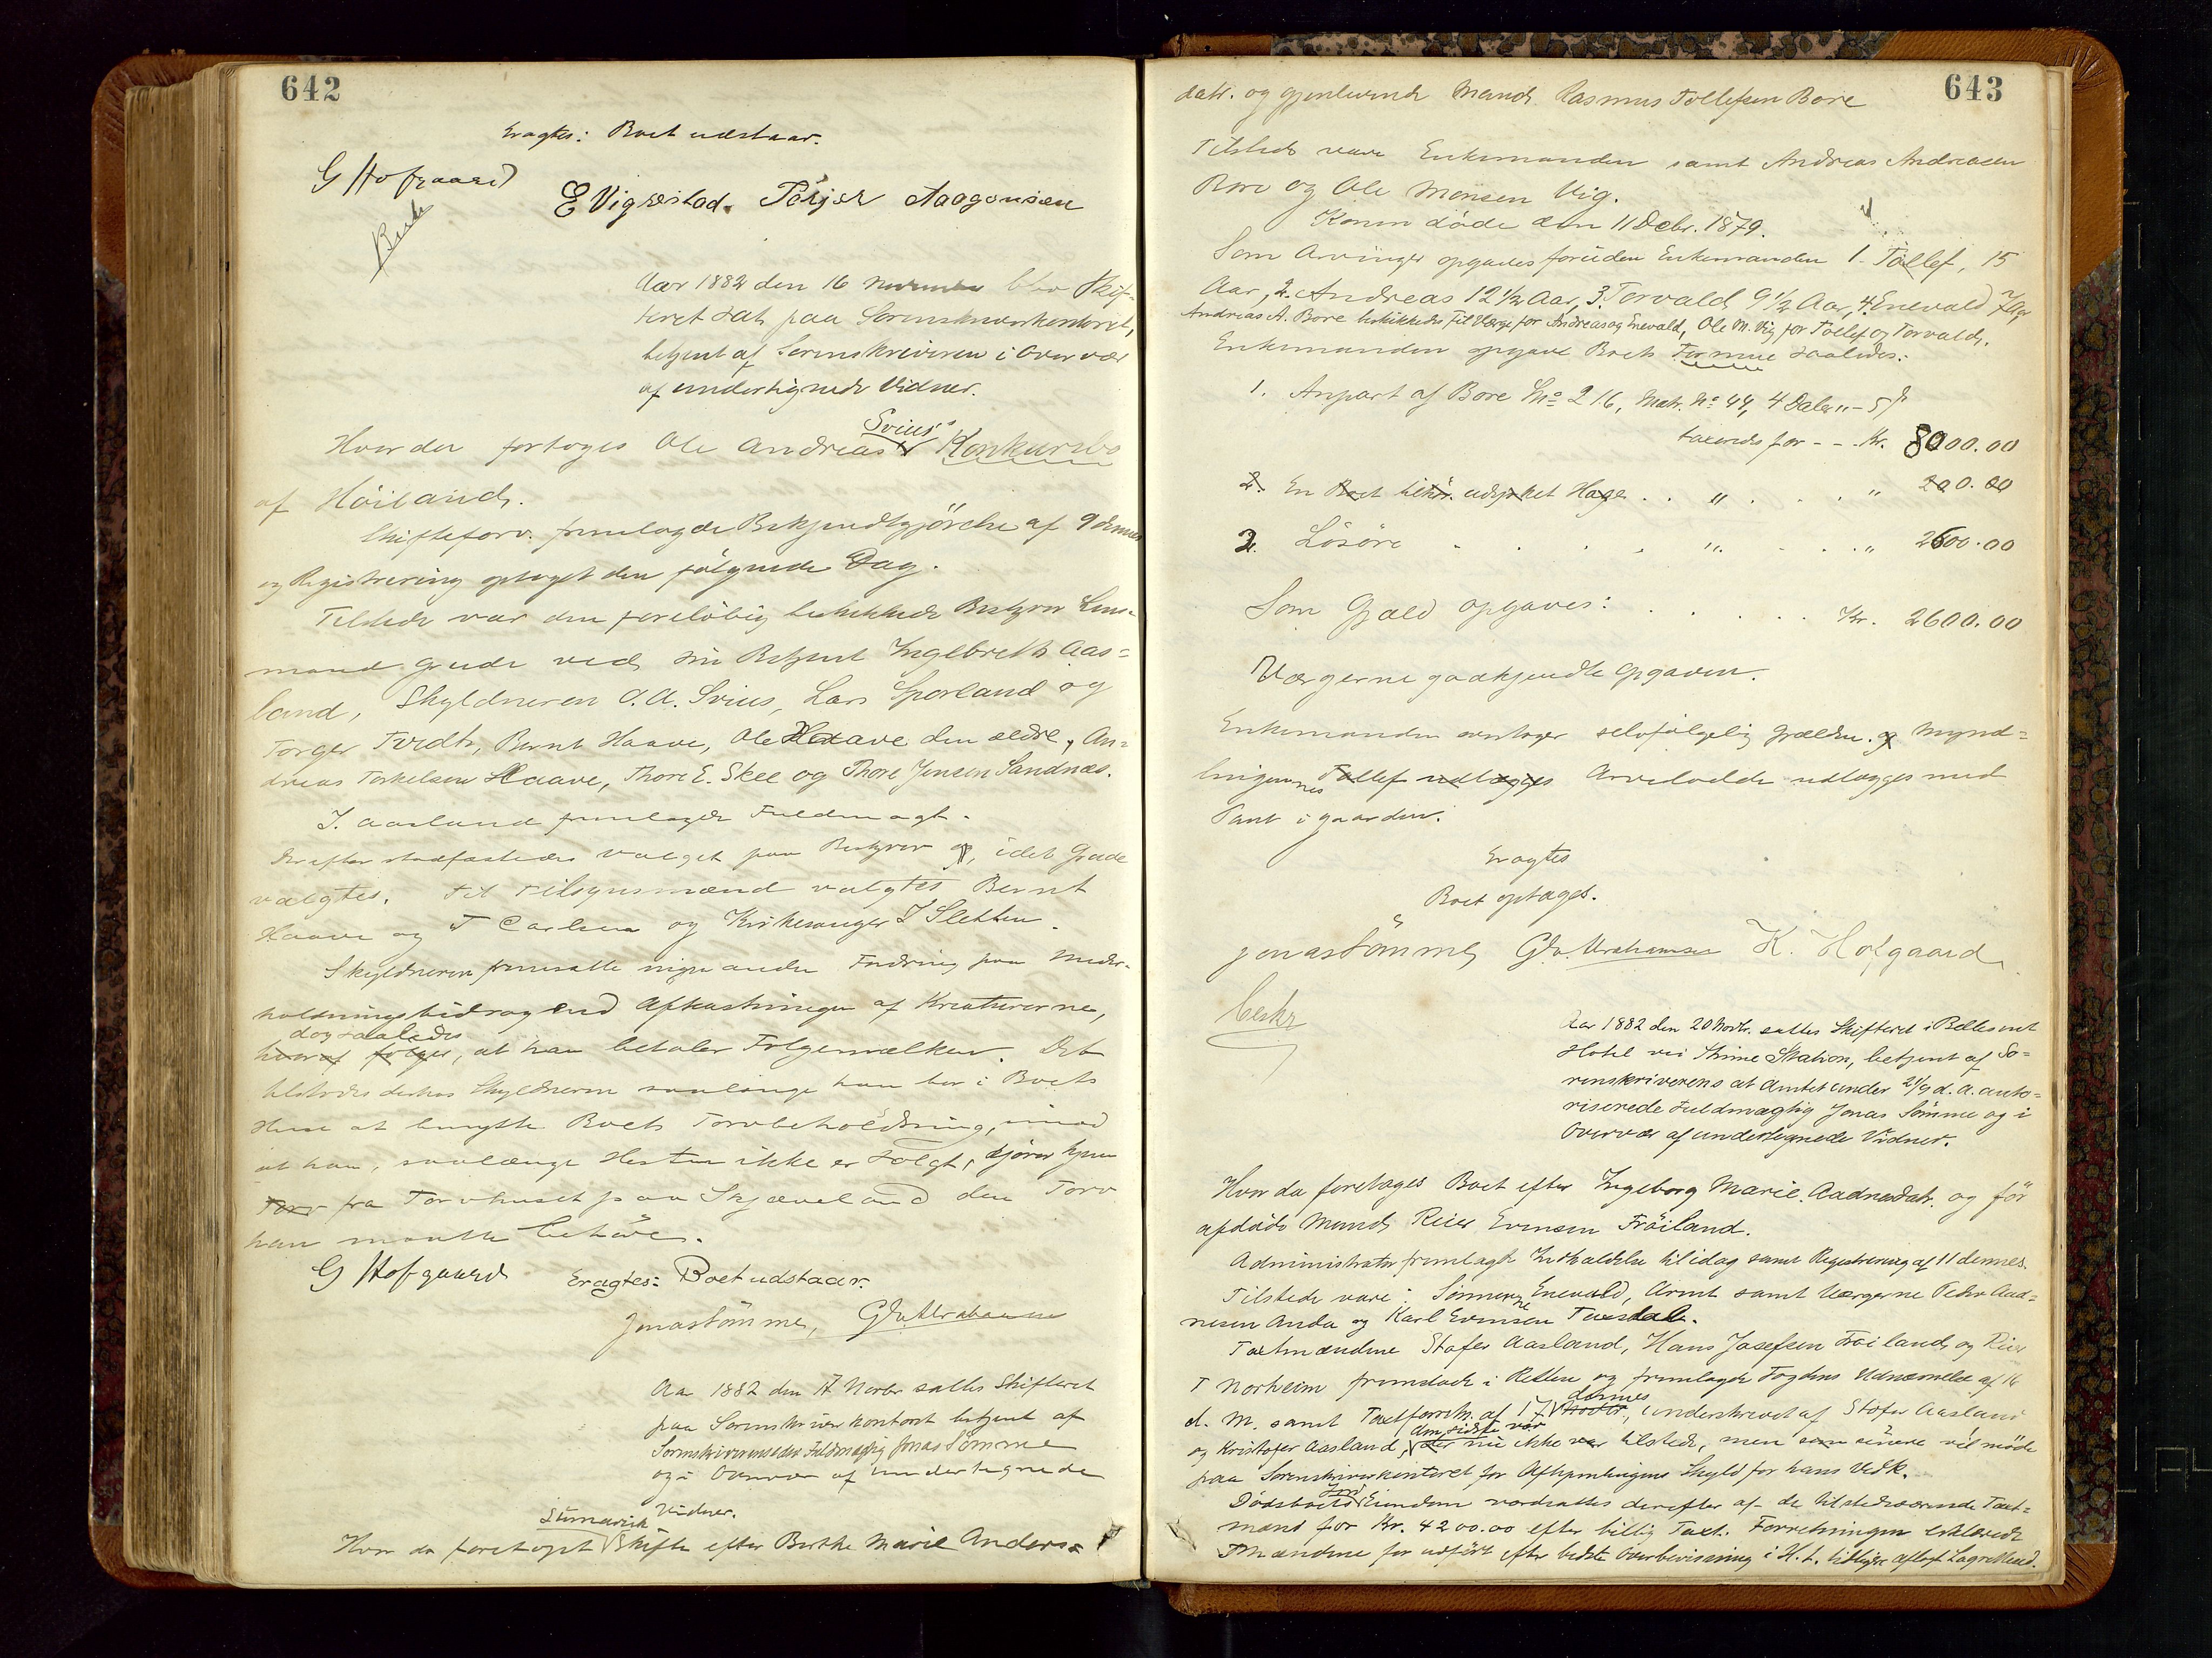 642
Eragtes: Boet udstaar.
G Hofgaard
E Vigrestad. Törjer Aaagonsen
Aar 1882 den 16 November blev Skif-
teret sat paa Sorenskriverkontoret,
betjent af Sorenskriveren i Overvær
af undertegnede Vidner.
Svius's
Hvorda foretoges Ole Andreas Konkursbo
af Höiland.
Skifteforv. fremlagde Bekjendtgjörelse af 9 dennes
og Registrering optaget den fölgende Dag.
Tilstede var den foreløbig beskikkede Bestyrer Lens-
mand Gude ved sin Betjent Ingebreth Aas=
land, Skyldneren O. A. Svius, Lars Sporland og
Torger Tvedt, Bernt Haave, Ole Haave den ældre, An=
dreas Torkelsen Haave, Thore E. Skee og Thore Jensen Sandnæs.
I. Aasland fremlagde Fuldmagt.
Derefter stadfæstedes Valget paa Bestyrer, idet Gude
valgtes. Til Tilsynsmænd valgtes Bernt
Haave og T Carlsen og Kirkesanger I Sletten.
Skyldneren fremsatte ingen anden Fordring paa Under-
holdningsbidrag end Afkastningen af Kreaturerne,
dog saaledes
hvoraf følger, at han betaler Følgemælken. Det
tilstodes derhos Skyldneren saalænge han bor i Boets
Huse at benytte Boets Torvbeholdning, imod
at han, saalænge Hesten ikke er solgt, kjörer hjem
Torv fra Torvhuset paa Skjæveland den Torv
han maatte behöve.
G Hofgaard
Eragtes: Boet udstaar.
Jonas Sömme, G. Abrahamsen
Aar 1882 den 17 Novbr sattes Skifteret
paa Sorenskriverkontoret betjent af
Sorenskriverens edsv. Fuldmægtig Jonas Sömme
og i Overvær af undertegnede
Vidner.
Sumarisk
Hvor da foretoges Skifte efter Berthe Marie Anders=
643
datr. og gjenlevende Mand Rasmus Tollefsen Bore
Tilstede vare Enkemanden samt Andreas Andreasen
Bore og Ole Monsen Vig.
Konen döde den 11 Decbr. 1879.
Som Arvinger opgaves foruden Enkemanden 1. Tollef, 15
Aar, 2. Andreas 12 1/2 Aar, 3. Torvald 9 1/2 Aar, 4. Enevald 7 Aar
Andreas A. Bore beskikkedes til Værge for Andreas og Enevald, Ole M. Vig for Tollef og Torvald.
Enkemanden opgav Boets Formue saaledes:
1. Anpart af Bore Lno 216, Matr. No 44, 4 Daler " - 5 ß
taxeredes for - - Kr. 8000.00
2. En Boet tilhör. udsikket Hage . . " . . . . " 200.00
2. Lösöre . . . . " . . . " 2600.00
Som Gjæld opgaves: . . . . . Kr. 2600.00
Værgerne godkjendte Opgaven.
Enkemanden overtager selvfölgelig Gjælden. og Mynd=
lingernes Tollef udlægges Arvelodde udlægges med
Pant i Gaarden.
Eragtes
Boet optages.
Jonas Sömme, G. Abrahamsen K. Hofgaard
Beskr
Aar 1882 den 20 Novbr. sattes Skifteret i Bellesent
Hotel ved Thime Station, betjent af So=
renskriverens af Amtet under 21/9 d. A. auto=
riserede Fuldmægtig Jonas Sömme og i
Overvær af undertegnede Vidner.
Hvor da foretoges Boet efter Ingeborg Marie Aadnesdatr. og för
afdöde Mand Reier Evensen Fröiland.
Administrator fremlagde Indkaldelse til idag samt Registrering af 11 dennes.
Tilstede vare: Sönnerne Enevald, Arent samt Værgerne Peder Aad=
nesen Anda og Karl Evensen Tuesdal.
Taxtmændene Stofer Aasland, Hans Josefsen Fröiland og Reier
T Norheim fremstod i Retten og fremlagde Fogdens Udnævnelse af 16
dennes
d. M. samt Taxtforretn. af 17 Novbr., underskrevet af Stofer Aasland
den sidste var
og Kristofer Aasland, der nu ikke var tilstede, men senere vil möde
paa Sorenskriverkontoret for Afhjemlingens Skyld for hans Vedk.
Jord
Dödsboets Eiendom værdsattes derefter af de tilstedeværende Taxt=
mænd for Kr. 4200.00 efter billig Taxt. Forretningen erklærede
Mændene for udfört efter bedste Overbevisning i H. t. tidligere aflagt Lagretted.